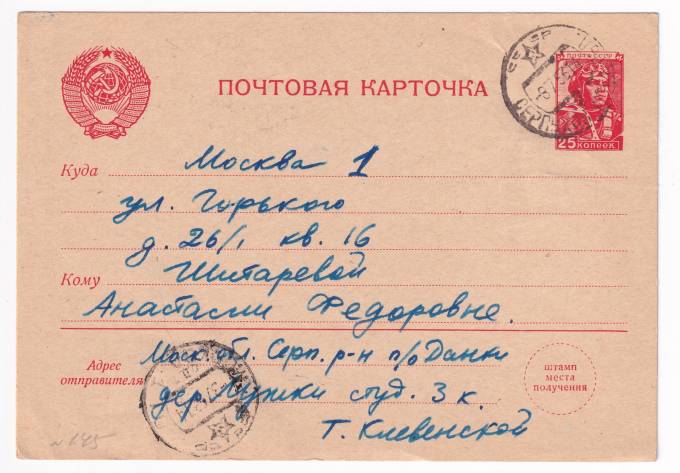 ПОЧТОВАЯ КАРТОЧКА
ПОЧТА СССР
25 КОПЕЕК
СССР
Куда Москва 1
ул. Горького
д. 26/1 кв. 16
Кому Шитаревой
Анастасии Федоровне.
Адрес отправителя Моск. обл. Серп. р-н п/о Данки
дер. Лужки студ. 3 к.
Т. Клевенской
штамп
места
получения